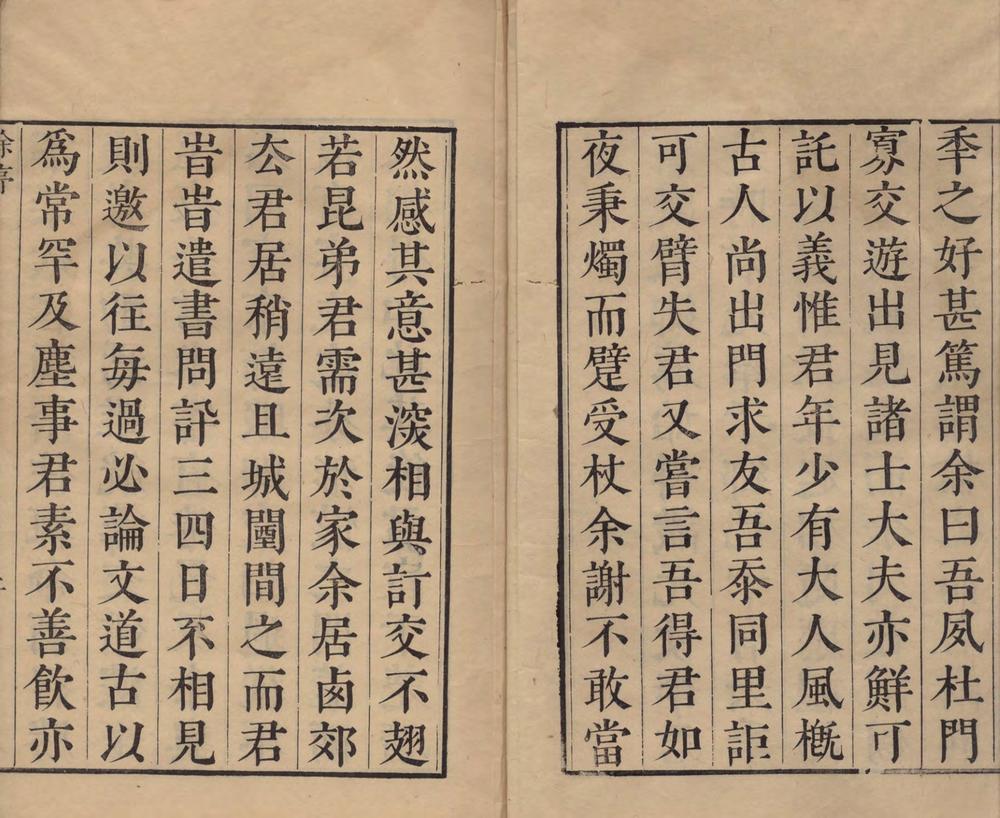 秊之好甚篤謂余曰吾夙杜門
寡交遊出見諸士大夫亦鮮可
託以義惟君年少有大人風槪
古人尚出門求友吾忝同里詎
可交臂失君又嘗言吾得君如
夜秉燭而躄受杖余謝不敢當
然感其意甚深相與訂交不翅
若昆弟君需次於家余居卥郊
厺君居稍遠且城闉間之而君
旹旹遣書問訊三四日不相見
則邀以往每過必論文道古以
爲常罕及塵事君素不善飮亦